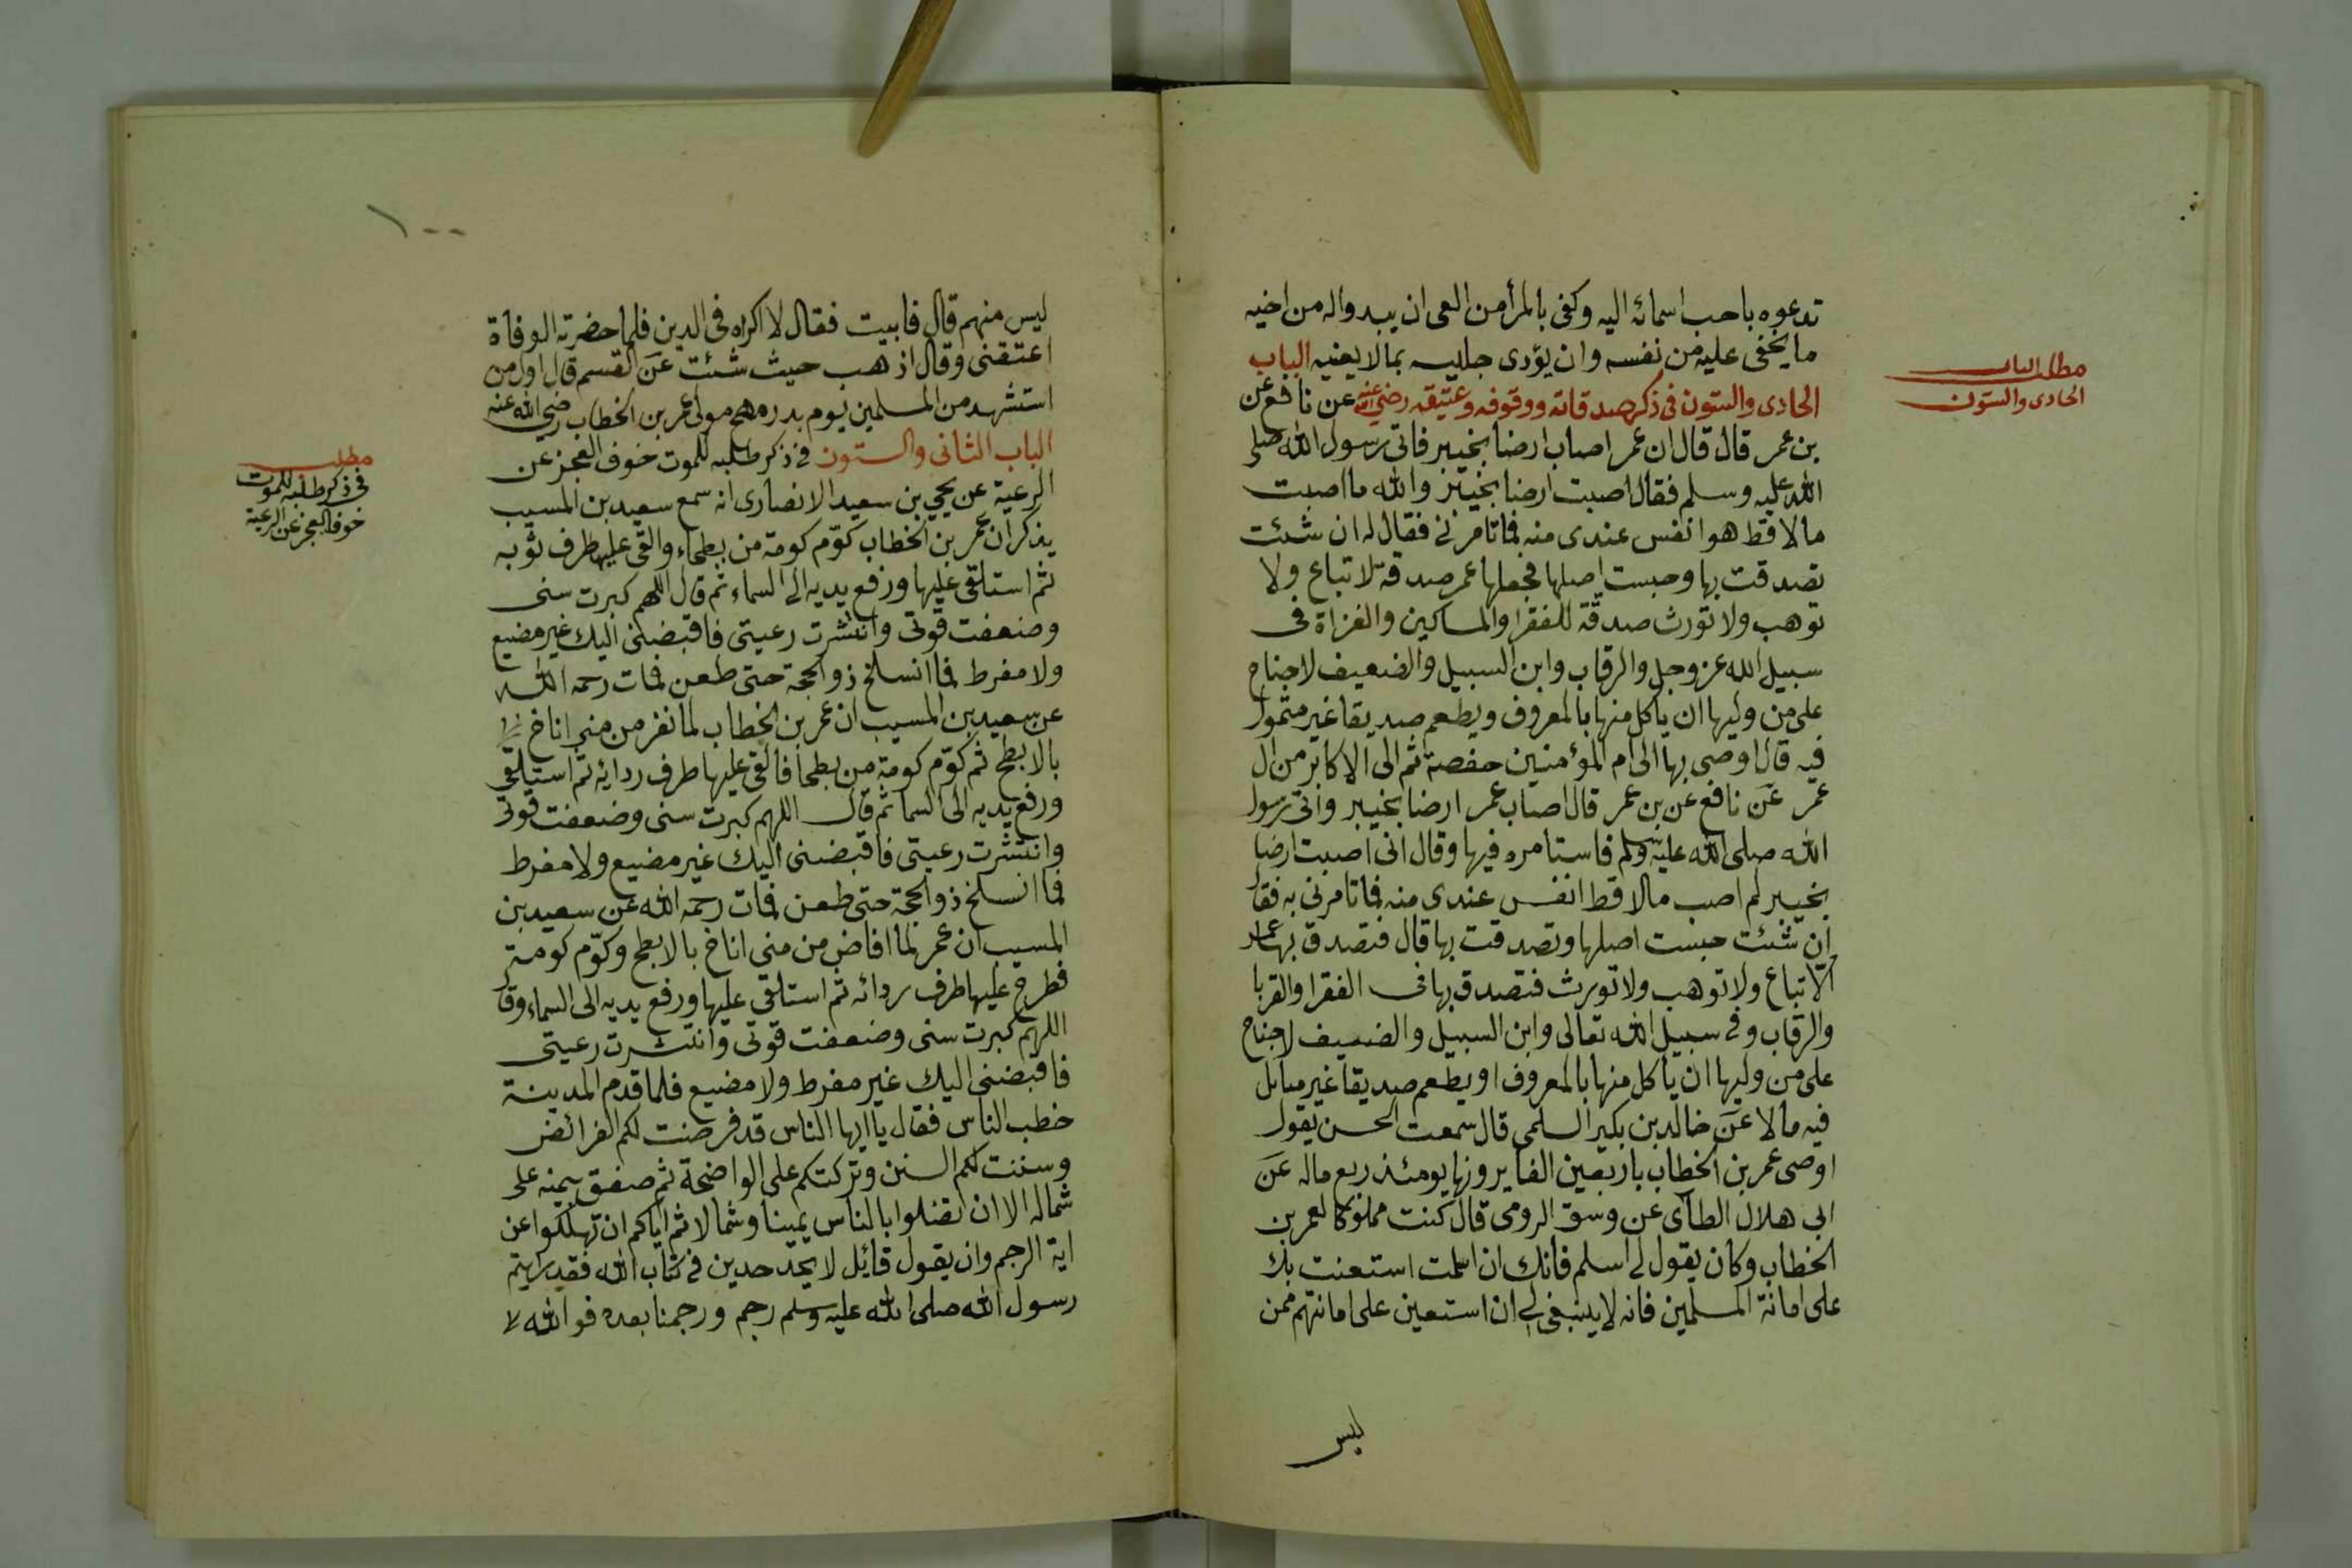 تدعوه باحب اسمائه اليه وكفى بالمرأ من العى ان يبدوا له من اخيه
ما يخفى عليه من نفسه وان يؤدى جليسه بما لا يعنيه الباب
الحادى والستون فى ذكر صدقاته ووقوفه وعتيقه رضي الله عنه عن نافع عن
بن عمر قال قال ان عمر اصاب ارضا بخيبر فاتى رسول الله صلى
الله عليه وسلم فقال اصبت ارضا بخيبر والله ما اصبت
مالا قط هو انفس عندى منه فما تامرنى فقال له ان شئت
تصدقت بها وحبست اصلها فجعلها عمر صدقة لا تباع ولا
توهب ولا تورث صدقة للفقرا والمساكين والغزاة فى
سبيل الله عز وجل والرقاب وابن السبيل والضعيف لا جناح
على من وليها ان ياكل منها بالمعروف ويطعم صديقا غير متمول
فيه قال اوصى بها الى ام المؤمنين حفصة ثم الى الاكابر من ال
عمر عن نافع عن بن عمر قال اصاب عمر ارضا بخيبر واتى رسول
الله صلى الله عليه وسلم فاستامره فيها وقال انى اصبت ارضا
بخيبر لم اصب مالا قط انفس عندى منه فما تامرنى به فقال
ان شئت حبست اصلها وتصدقت بها قال فتصدق بها عمر
الا تباع ولا توهب ولا تورث فتصدق بها فى الفقرا والقربا
والرقاب وفى سبيل الله تعالى وابن السبيل والضعيف لا جناح
على من وليها ان يأكل منها بالمعروف او يطعم صديقا غير متأثل
فيه مالا عن خالد بن بكير السلمى قال سمعت الحسن يقول
اوصى عمر بن الخطاب باربعين الفا يرونها يومئذ ربع ماله عن
ابى هلال الطآى عن وسق الرومى قال كنت مملوكا لعمر بن
الخطاب وكان يقول لى اسلم فانك ان اسلمت استعنت بك
على امانة المسلمين فانه لا ينبغى لى ان استعين على امانتهم ممن
ليس
مطلب الباب
الحادى والستون
١٠٠
ليس منهم قال فابيت فقال لا اكراه فى الدين فلما حضرته الوفاة
اعتقنى وقال اذهب حيث شئت عن القسم قال اول من
استشهد من المسلمين يوم بدر مهجع مولى عمر بن الخطاب رضي الله عنه
الباب الثانى والستون فى ذكر طلبه للموت خوف العجز عن
الرعية عن يحيى بن سعيد الانصارى انه سمع سعيد بن المسيب
يذكر ان عمر بن الخطاب كوّم كومة من بطحاء والقى عليها طرف ثوبه
ثم استلقى عليها ورفع يديه الى السماء ثم قال اللهم كبرت سنى
وضعفت قوتى وانتشرت رعيتى فاقبضنى اليك غير مضيع
ولا مفرط فما انسلخ ذو الحجة حتى طعن فمات رحمه الله
عن سعيد بن المسيب ان عمر بن الخطاب لما نفر من منى اناخ
بالابطح ثم كوّم كومة من بطحا فالقى عليها طرف ردائه ثم استلقى
ورفع يديه الى السما ثم قال اللهم كبرت سنى وضعفت قوتى
وانتشرت رعيتى فاقبضنى اليك غير مضيع ولا مفرط
فما انسلخ ذو الحجة حتى طعن فمات رحمه الله عن سعيد بن
المسيب ان عمر لما افاض من منى اناخ بالابطح وكوّم كومة
فطرح عليها طرف ردائه ثم استلقى عليها ورفع يديه الى السماء وقال
اللهم كبرت سنى وضعفت قوتى وانتشرت رعيتى
فاقبضنى اليك غير مفرط ولا مضيع فلما قدم المدينة
خطب الناس فقال يا ايها الناس قد فرضت لكم الفرائض
وسننت لكم السنن وتركتكم على الواضحة ثم صفق يمينه على
شماله الا ان تضلوا بالناس يمينا وشمالا ثم اياكم ان تهلكوا عن
اية الرجم وان يقول قائل لا يحد حدين فى كتاب الله فقد رايتم
رسول الله صلى الله عليه وسلم رجم ورجمنا بعده فوالله لا
مطلب
فى ذكر طلبه للموت
خوف العجز عن الرعية